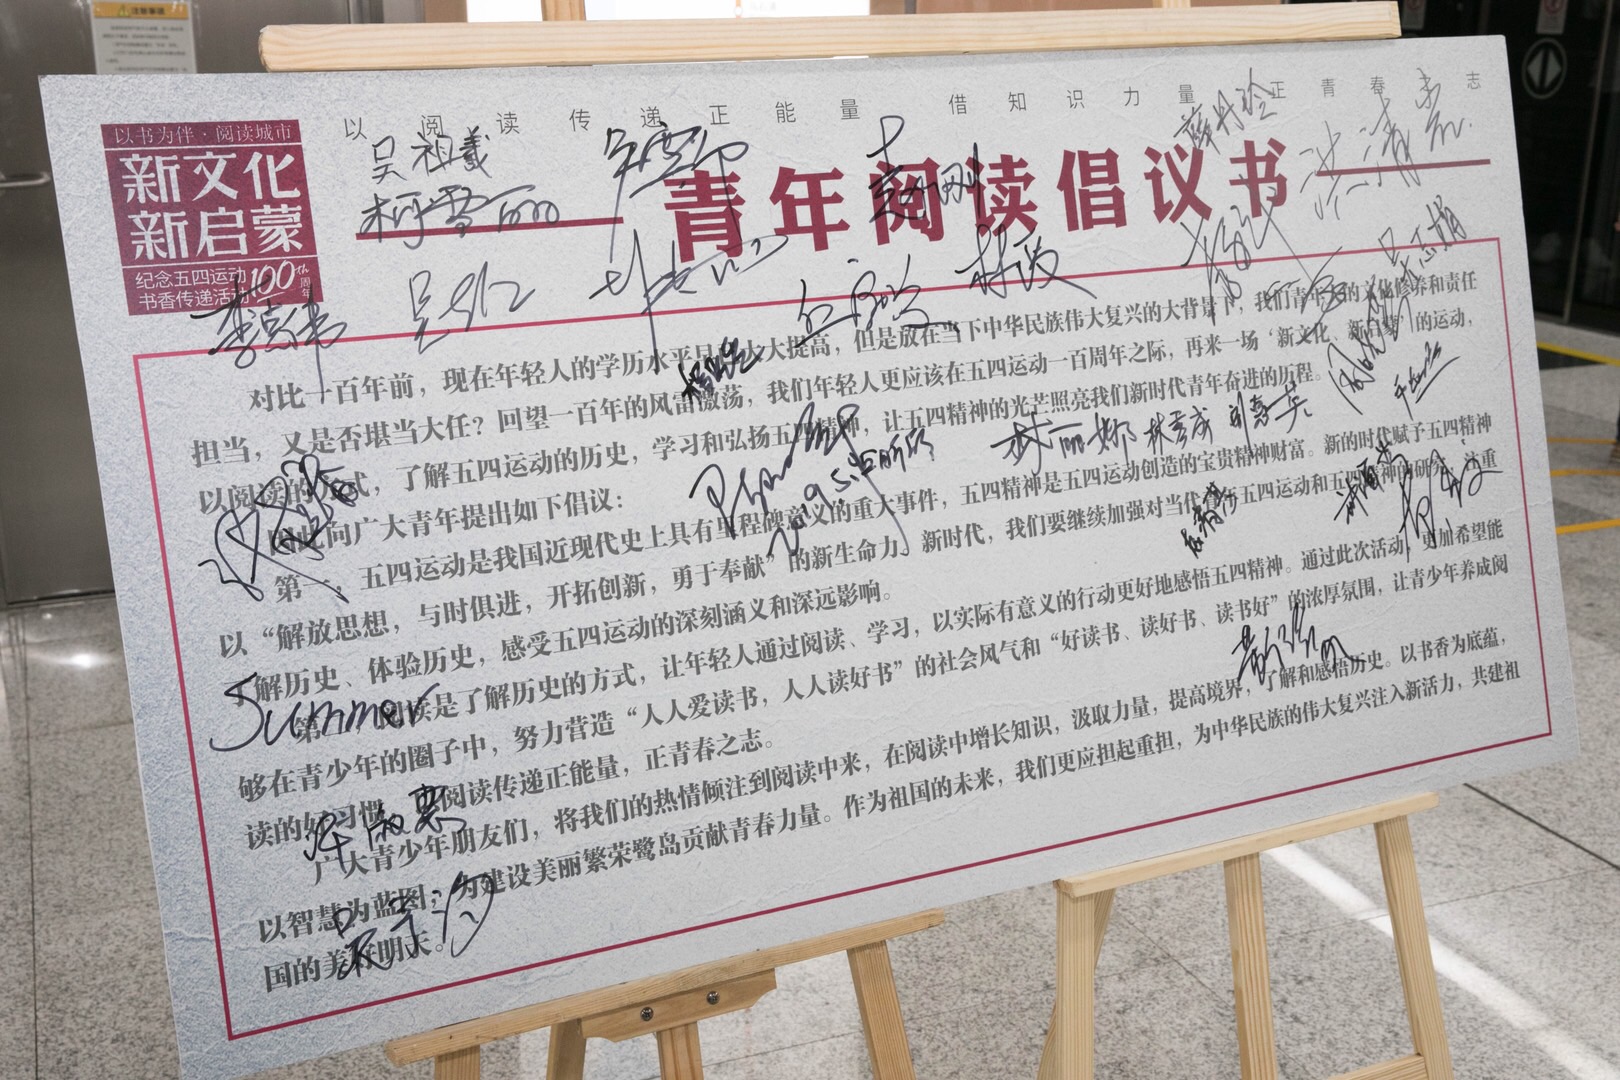 注意事项
以阅读传递正能量 借知识力量正青春志
以书为伴·阅读城市
新文化
新启蒙
纪念五四运动
书香传递活动
100th
周年
青年阅读倡议书
吴祖羲
对比一百年前，现在年轻人的学历水平早已大大提高，但是放在当下中华民族伟大复兴的大背景下，我们青年的文化修养和责任
担当，又是否堪当大任？回望一百年的风雷激荡，我们年轻人更应该在五四运动一百周年之际，再来一场‘新文化、新启蒙’的运动，
以阅读的方式，了解五四运动的历史，学习和弘扬五四精神，让五四精神的光芒照亮我们新时代青年奋进的历程。
因此向广大青年提出如下倡议：
第一，五四运动是我国近现代史上具有里程碑意义的重大事件，五四精神是五四运动创造的宝贵精神财富。新的时代赋予五四精神
以“解放思想，与时俱进，开拓创新，勇于奉献”的新生命力。新时代，我们要继续加强对当代青年五四运动和五四精神的研究，注重
了解历史、体验历史，感受五四运动的深刻涵义和深远影响。
第二，阅读是了解历史的方式，让年轻人通过阅读、学习，以实际有意义的行动更好地感悟五四精神。通过此次活动，更加希望能
够在青少年的圈子中，努力营造“人人爱读书，人人读好书”的社会风气和“好读书、读好书、读书好”的浓厚氛围，让青少年养成阅
读的好习惯，阅读传递正能量，正青春之志。
广大青少年朋友们，将我们的热情倾注到阅读中来，在阅读中增长知识，汲取力量，提高境界，了解和感悟历史。以书香为底蕴，
以智慧为蓝图，为建设美丽繁荣鹭岛贡献青春力量。作为祖国的未来，我们更应担起重担，为中华民族的伟大复兴注入新活力，共建祖
国的美好明天。
2019.5.4
林丽娜
Summer